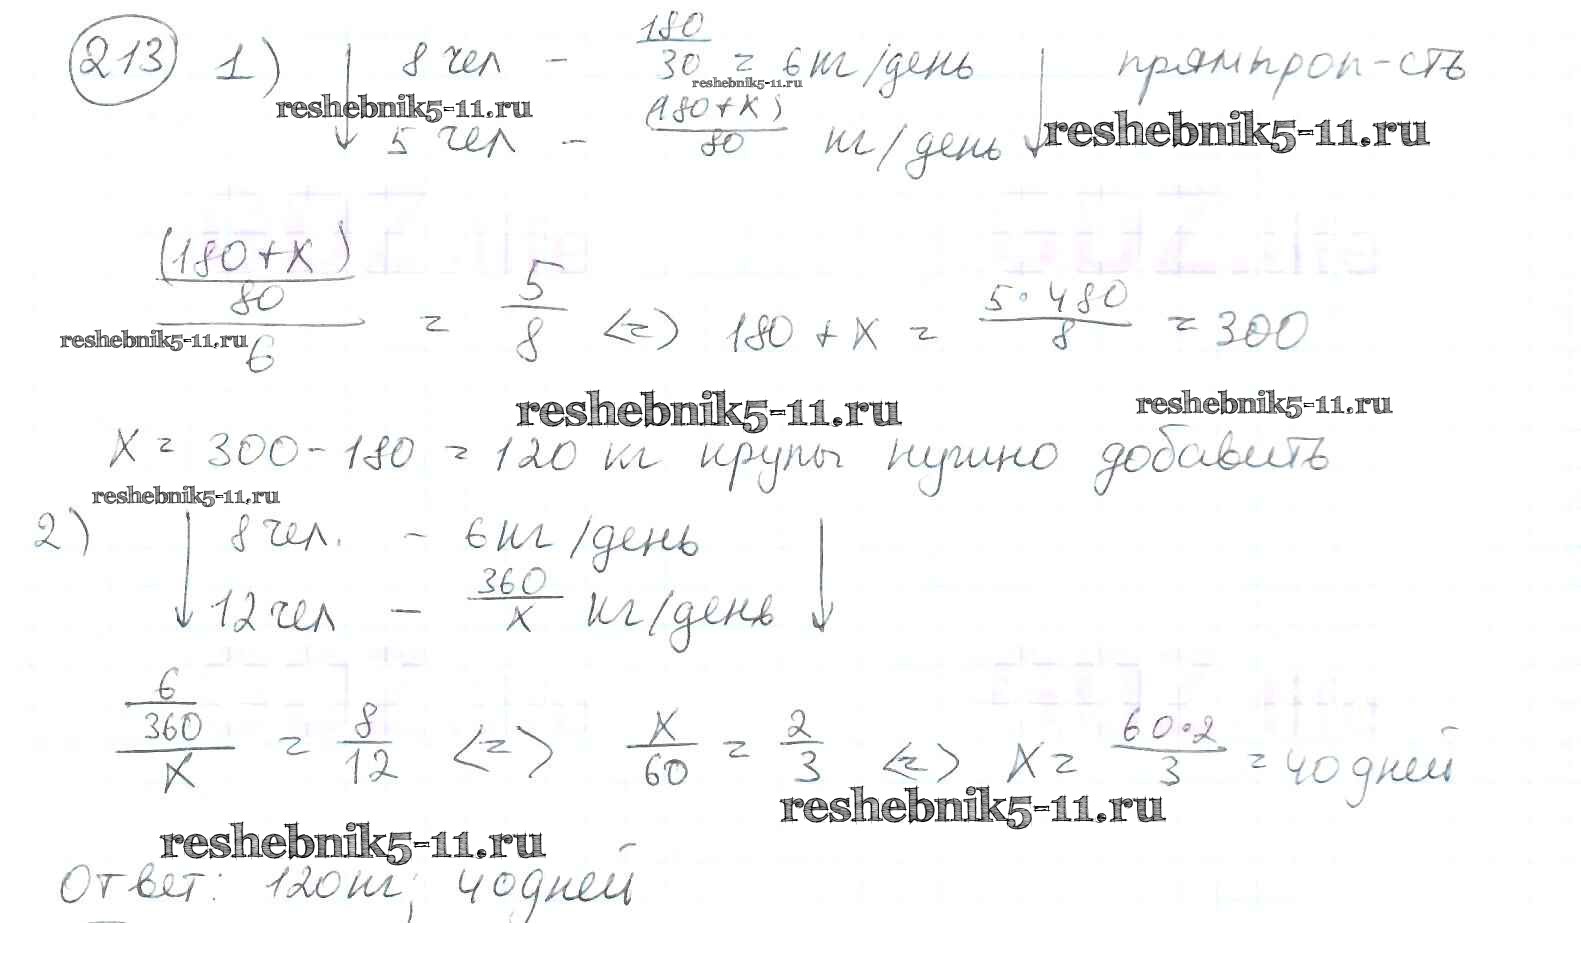 213 1) 8 чел - 180/30 = 6 кг/день прям проп-сть
reshebnik5-11.ru
reshebnik5-11.ru
5 чел - (180+x)/80 кг/день
reshebnik5-11.ru
((180+x)/80)/6 = 5/8 <=> 180 + x = 5·480/8 = 300
reshebnik5-11.ru
reshebnik5-11.ru
reshebnik5-11.ru
x = 300 - 180 = 120 кг крупы нужно добавить
reshebnik5-11.ru
2) 8 чел. - 6 кг/день
12 чел - 360/x кг/день
6/(360/x) = 8/12 <=> x/60 = 2/3 <=> x = 60·2/3 = 40 дней
reshebnik5-11.ru
reshebnik5-11.ru
Ответ: 120 кг; 40 дней